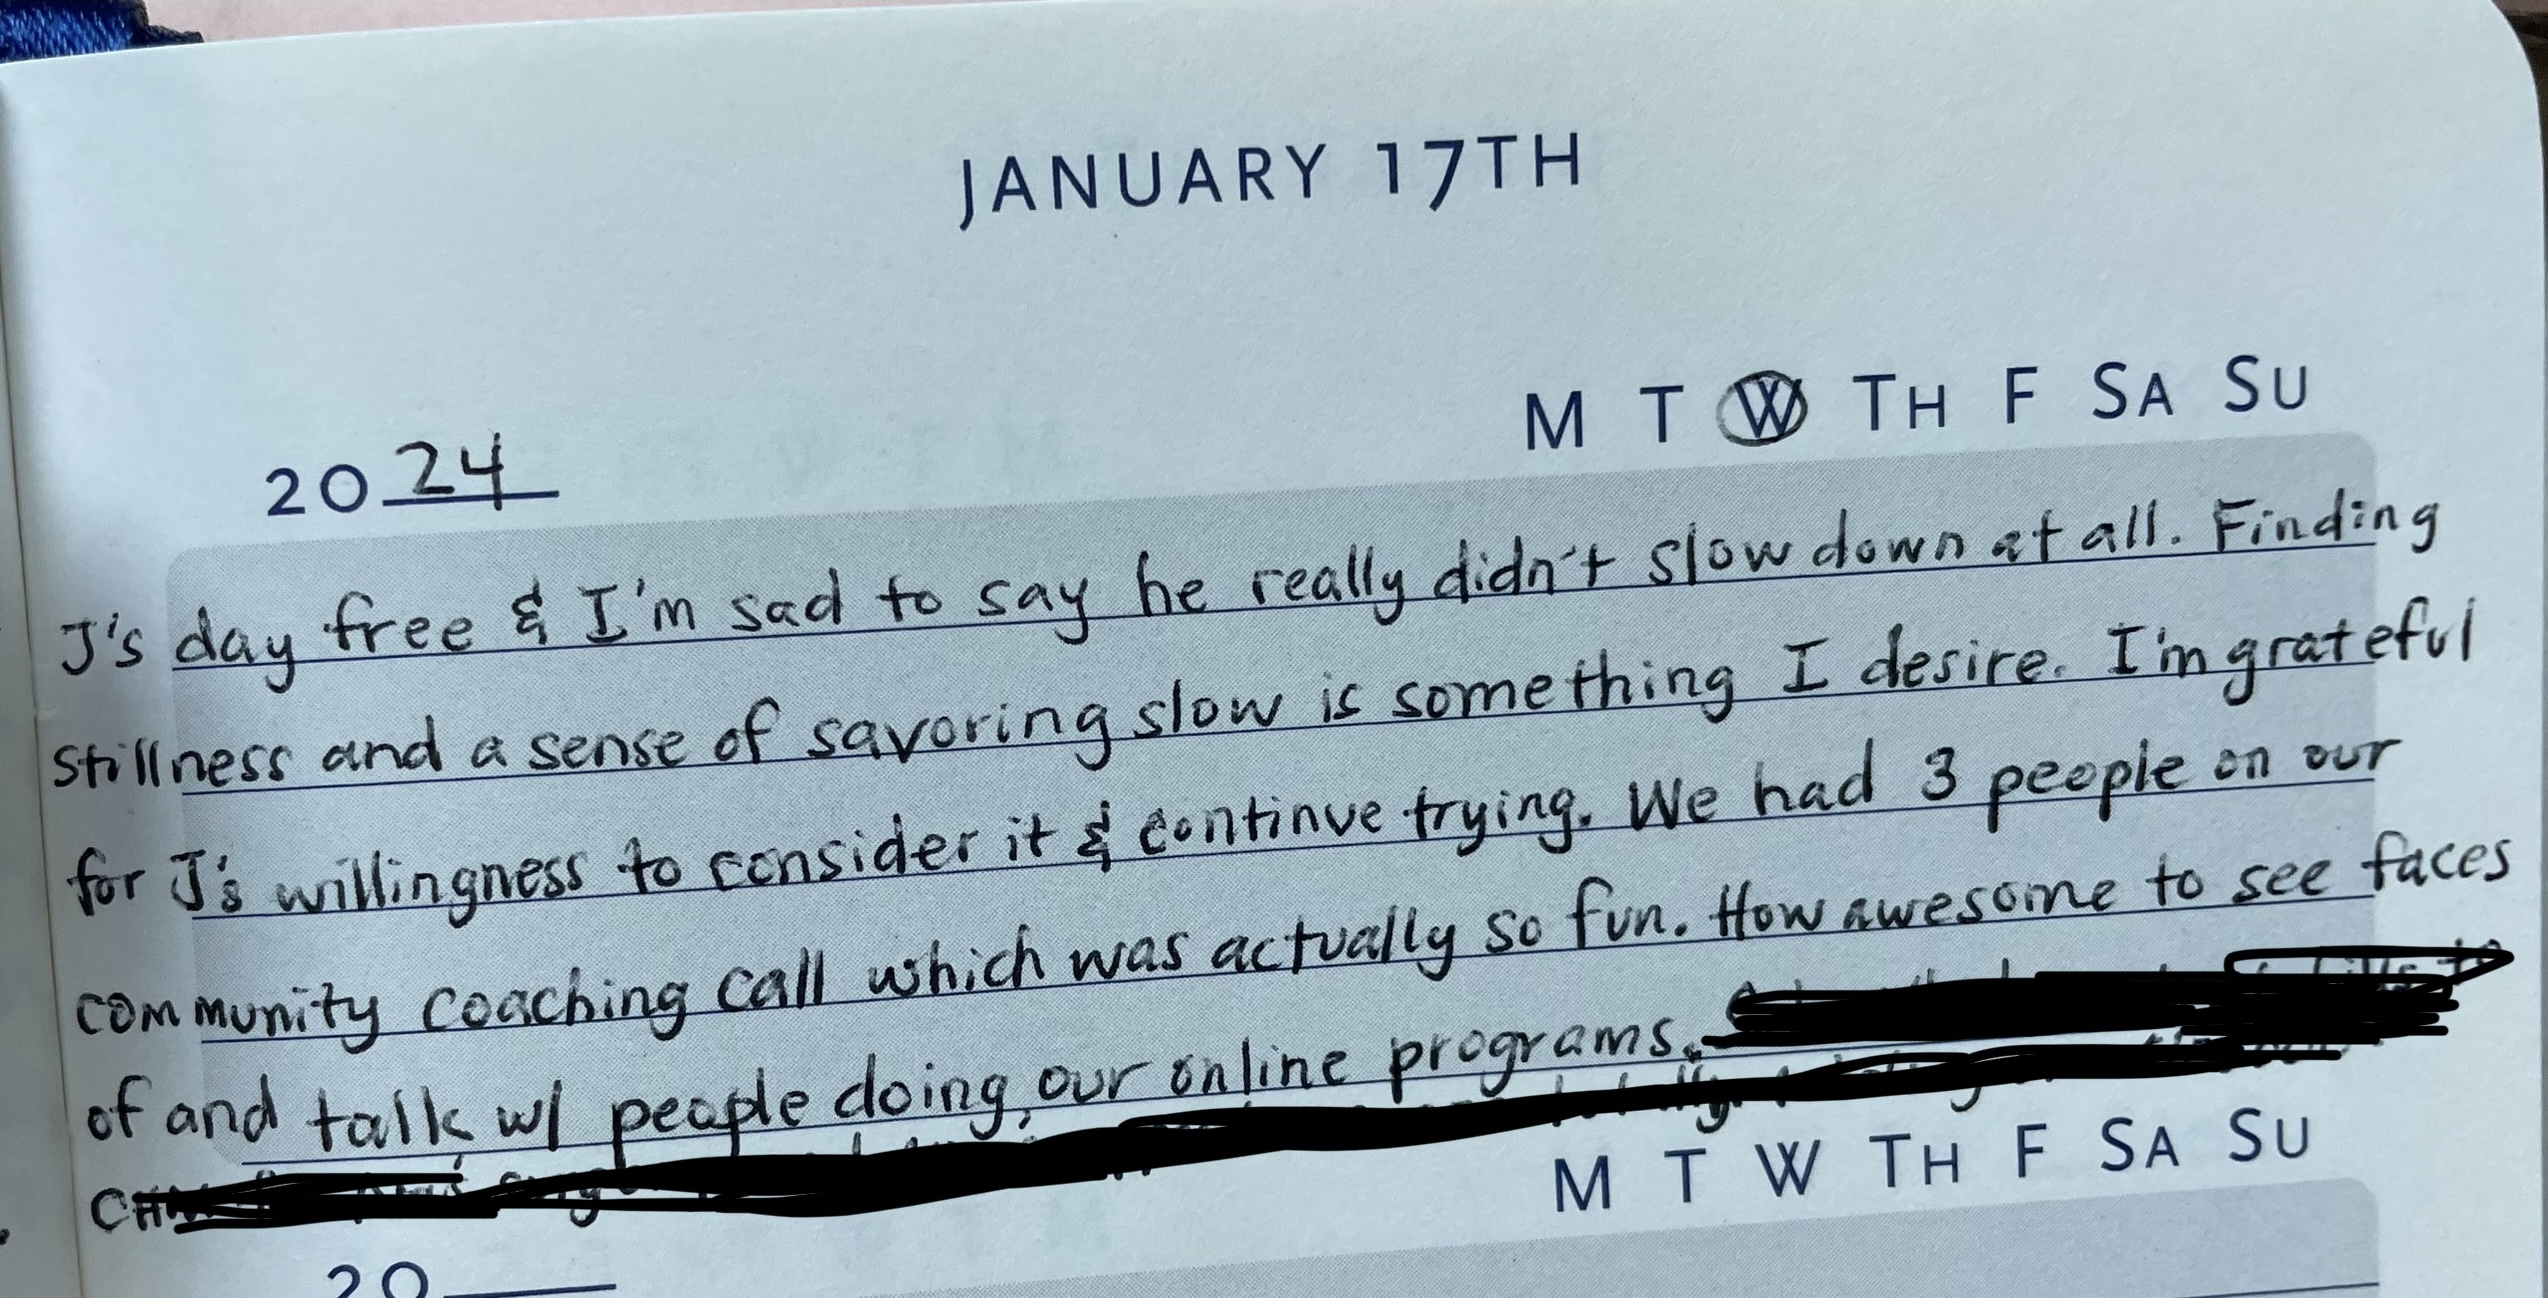 JANUARY 17TH
M T W TH F SA SU
20 24
J's day free & I'm sad to say he really didn't slow down at all. Finding
stillness and a sense of savoring slow is something I desire. I'm grateful
for J's willingness to consider it & continue trying. We had 3 people on our
community coaching call which was actually so fun. How awesome to see faces
of and talk w/ people doing our online programs.
M T W TH F SA SU
20